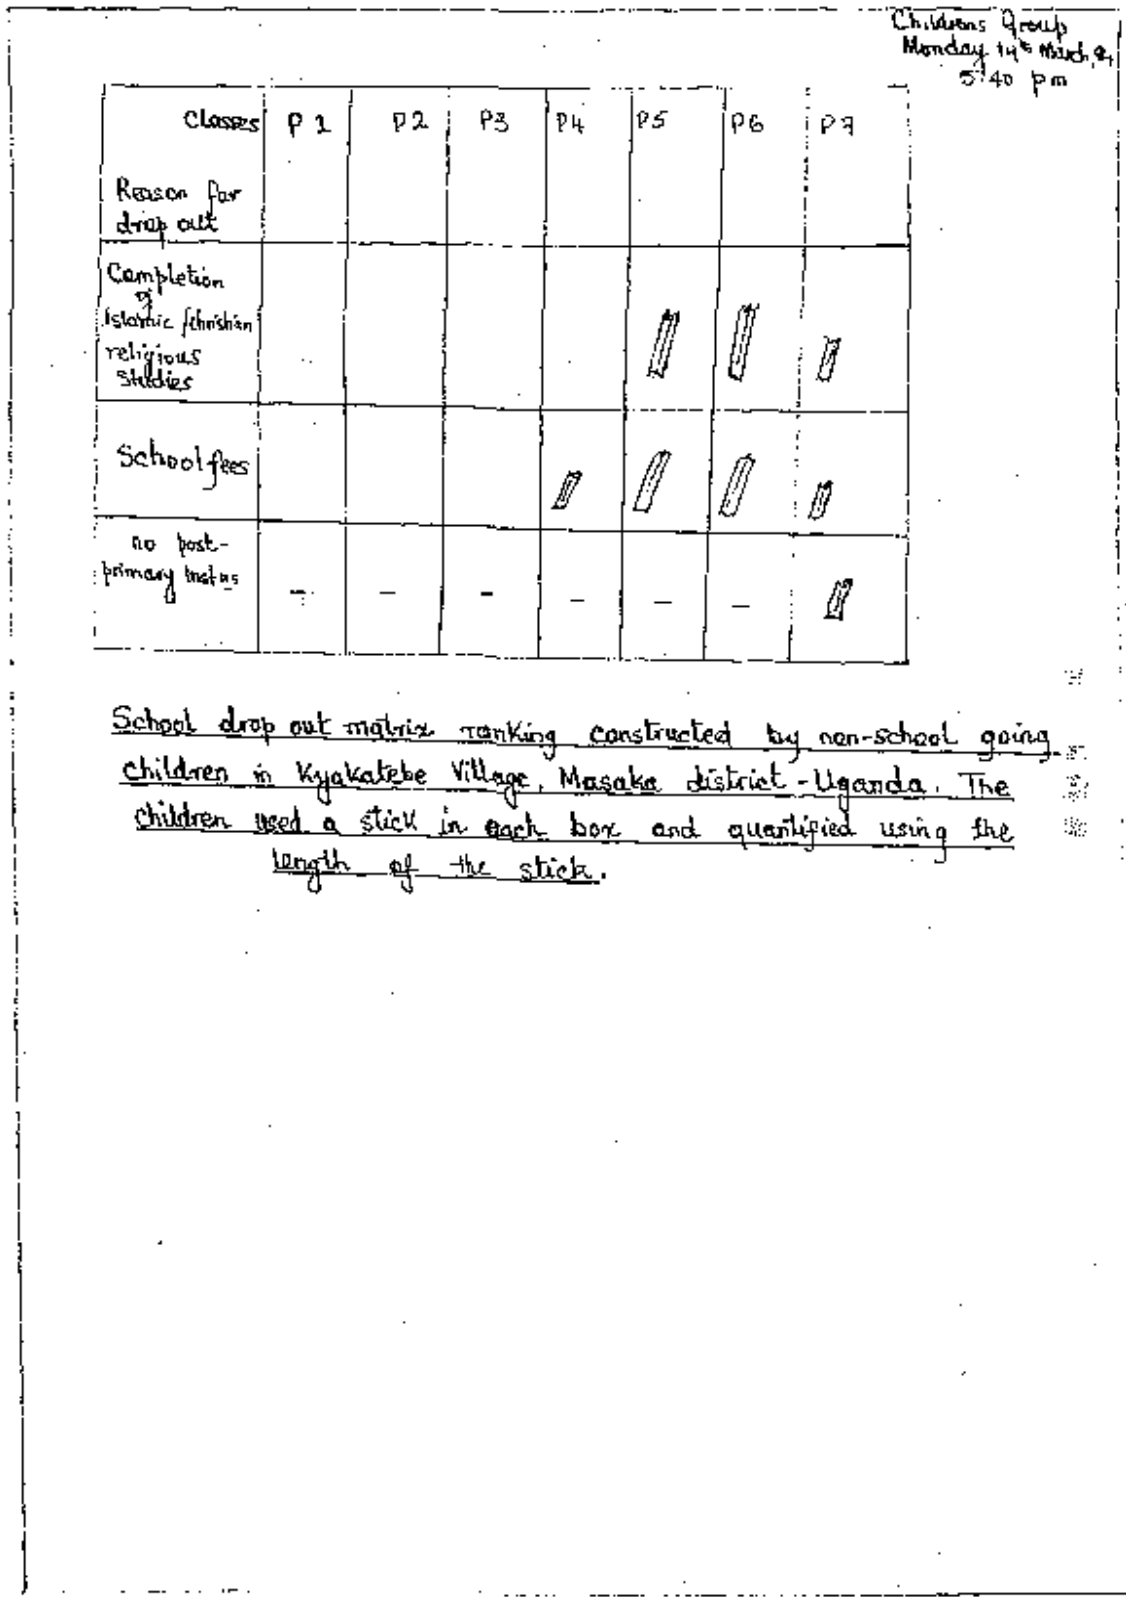 Childrens Group
Monday 14th March, 94
5.40 pm
Classes P1 P2 P3 P4 P5 P6 P7
Reason for
drop out
Completion
of
Islamic /christian
religious
Studies
School fees
no post-
primary
– – – – – –
School drop out matrix ranking constructed by non-school going
children in Kyakatebe Village, Masaka district - Uganda. The
children used a stick in each box and quantified using the
length of the stick.